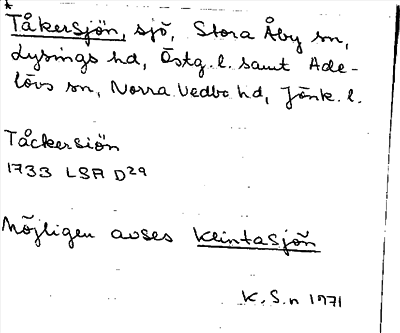 *
Tåkersjön, sjö, Stora Åby sn,
Lysings hd, Östg. l. samt Ade-
lövs sn, Norra Vedbo hd, Jönk. l.
Tåckersiön
1733 LSA D29
Möjligen avses Klintasjön
K. S-n 1971